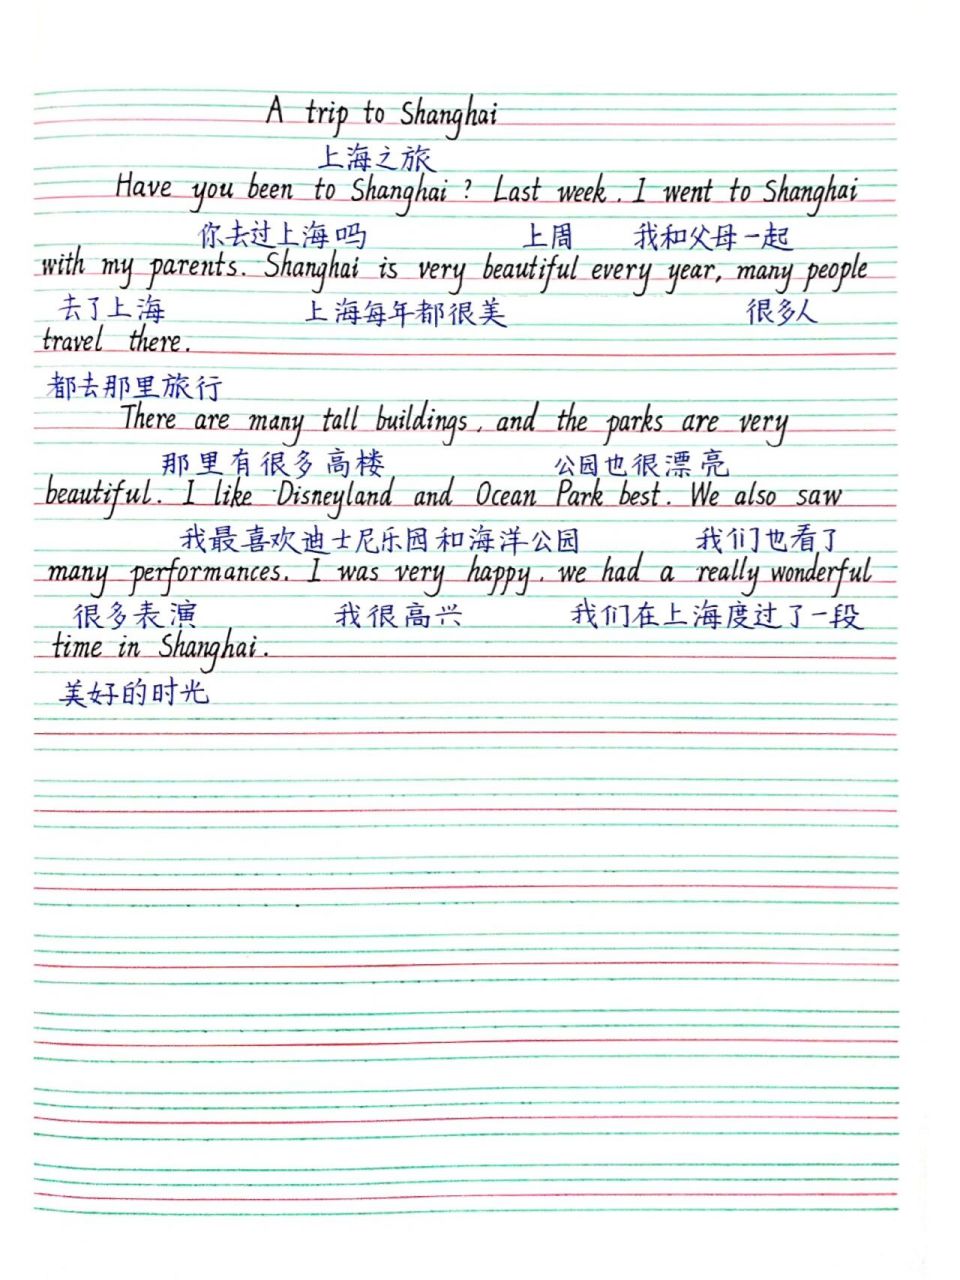 A trip to Shanghai
上海之旅
Have you been to Shanghai ? Last week . I went to Shanghai
你去过上海吗 上周 我和父母一起
with my parents. Shanghai is very beautiful every year, many people
去了上海 上海每年都很美 很多人
travel there.
都去那里旅行
There are many tall buildings , and the parks are very
那里有很多高楼 公园也很漂亮
beautiful. I like Disneyland and Ocean Park best. We also saw
我最喜欢迪士尼乐园和海洋公园 我们也看了
many performances. I was very happy . we had a really wonderful
很多表演 我很高兴 我们在上海度过了一段
time in Shanghai.
美好的时光